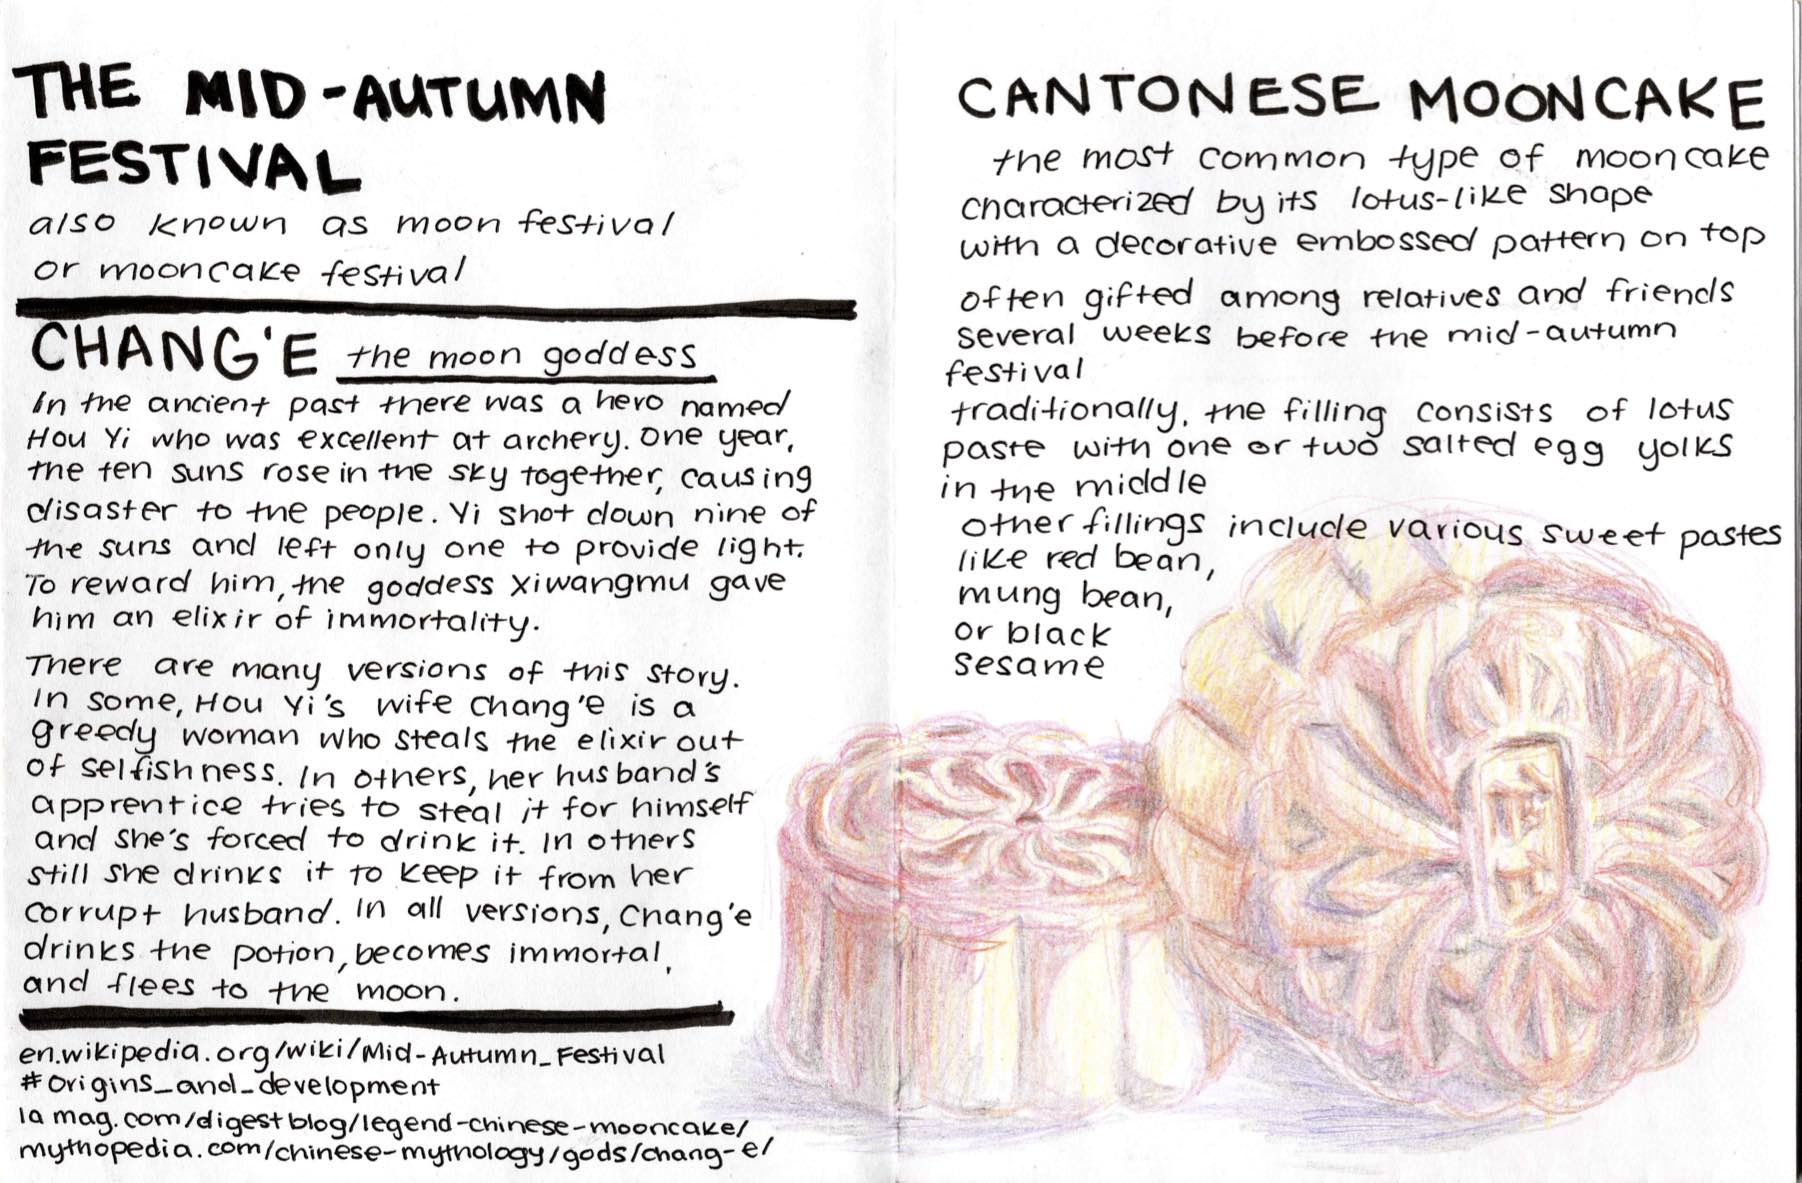 THE MID-AUTUMN
FESTIVAL
also known as moon festival
or mooncake festival
CHANG'E the moon goddess
In the ancient past there was a hero named
Hou Yi who was excellent at archery. One year,
the ten suns rose in the sky together, causing
disaster to the people. Yi shot down nine of
the suns and left only one to provide light.
To reward him, the goddess Xiwangmu gave
him an elixir of immortality.
There are many versions of this story.
In some, Hou Yi's wife Chang'e is a
greedy woman who steals the elixir out
of selfishness. In others, her husband's
apprentice tries to steal it for himself
and she's forced to drink it. In others
still she drinks it to keep it from her
corrupt husband. In all versions, Chang'e
drinks the potion, becomes immortal,
and flees to the moon.
en.wikipedia.org/wiki/Mid-Autumn_Festival
#Origins_and_development
lamag.com/digestblog/legend-chinese-mooncake/
mythopedia.com/chinese-mythology/gods/chang-e/
CANTONESE MOONCAKE
the most common type of mooncake
characterized by its lotus-like shape
with a decorative embossed pattern on top
often gifted among relatives and friends
several weeks before the mid-autumn
festival
traditionally, the filling consists of lotus
paste with one or two salted egg yolks
in the middle
other fillings include various sweet pastes
like red bean,
mung bean,
or black
sesame